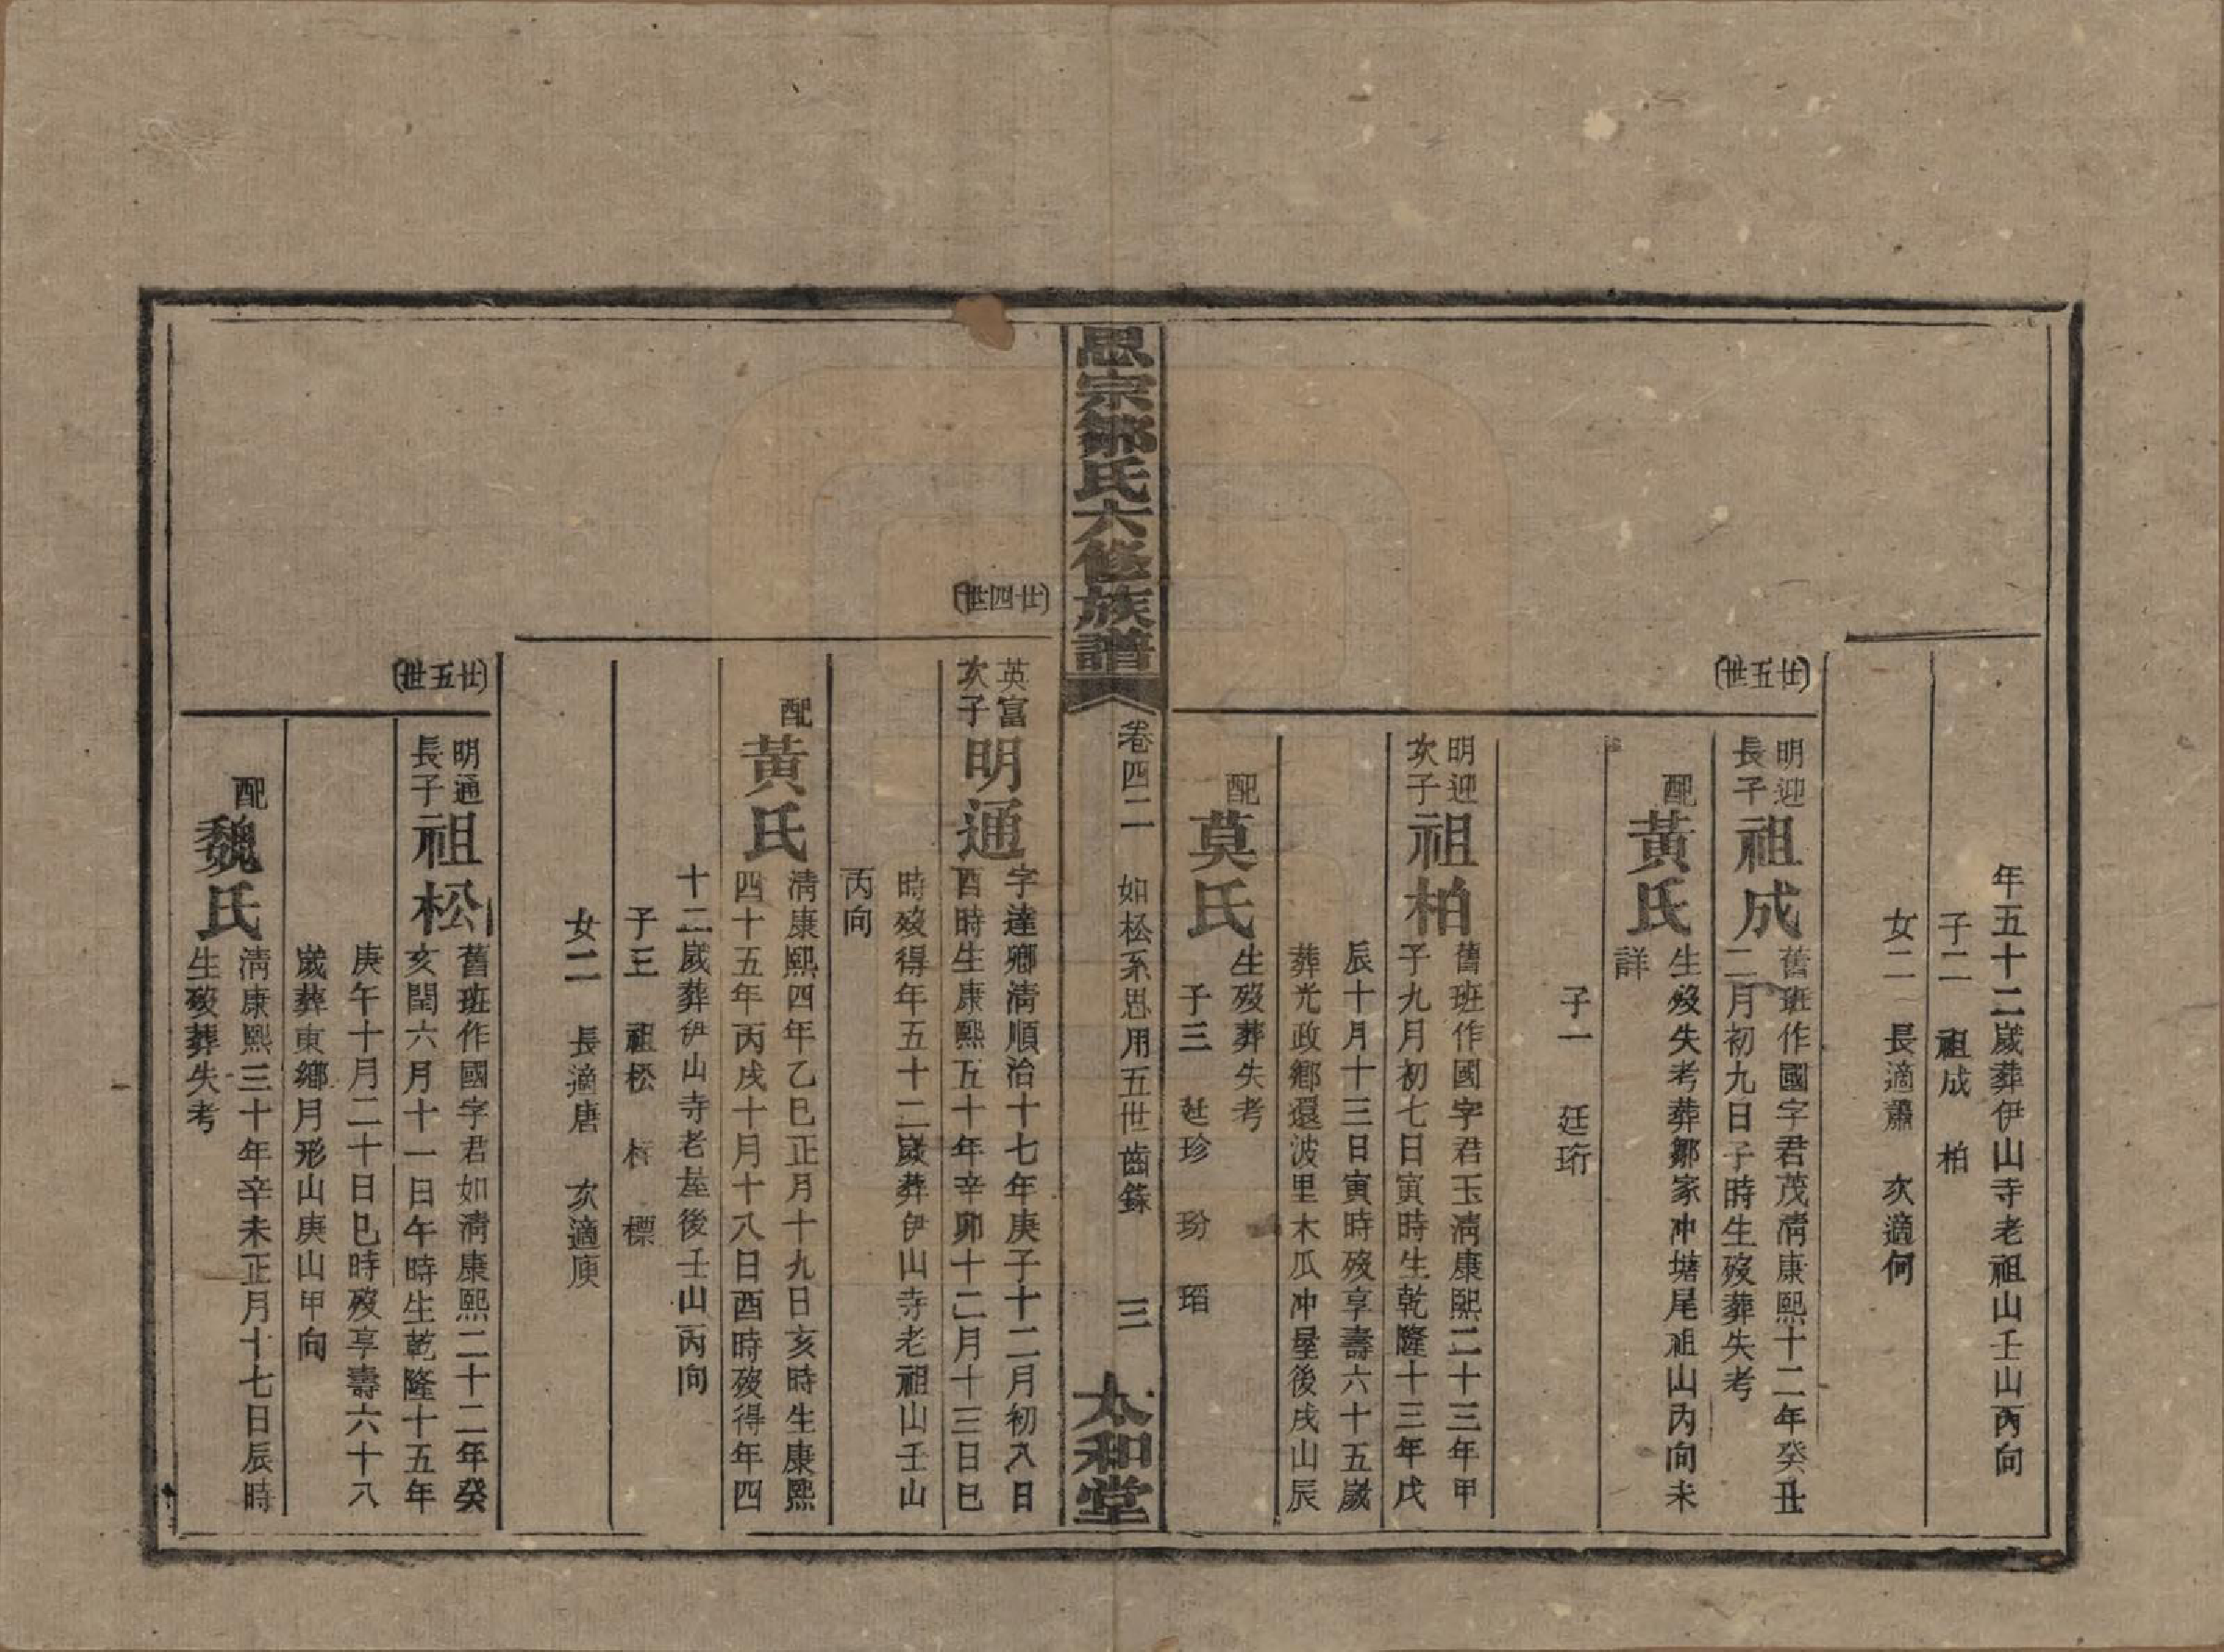 年五十二歲葬伊山寺老祖山壬山丙向
子二 祖成 柏
女二 長適蕭 次適何
〔廿五世〕
明迎長子祖成舊班作國字君茂清康熙十二年癸丑
二月初九日子時生歿葬失考
配黃氏生歿失考葬鄒家冲塘尾祖山丙向未
詳
子一 廷珩
明迎次子祖柏舊班作國字君玉清康熙二十三年甲
子九月初七日寅時生乾隆十三年戊
辰十月十三日寅時歿享壽六十五歲
葬光政鄉還波里木瓜冲屋後戌山辰
配莫氏生歿葬失考
子三 廷珍 玢 瑫
思宗鄒氏六修族譜
卷四二 如松系思用五世齒錄 三
太和堂
〔廿四世〕
英富次子明通字達鄉清順治十七年庚子十二月初八日
酉時生康熙五十年辛卯十二月十三日巳
時歿得年五十二歲葬伊山寺老祖山壬山
丙向
配黃氏清康熙四年乙巳正月十九日亥時生康熙
四十五年丙戌十月十八日酉時歿得年四
十二歲葬伊山寺老屋後壬山丙向
子三 祖松 標
女二 長適唐 次適庾
〔廿五世〕
明通長子祖松舊班作國字君如清康熙二十二年癸
亥閏六月十一日午時生乾隆十五年
庚午十月二十日巳時歿享壽六十八
歲葬東鄉月形山庚山甲向
配魏氏清康熙三十年辛未正月十七日辰時
生歿葬失考